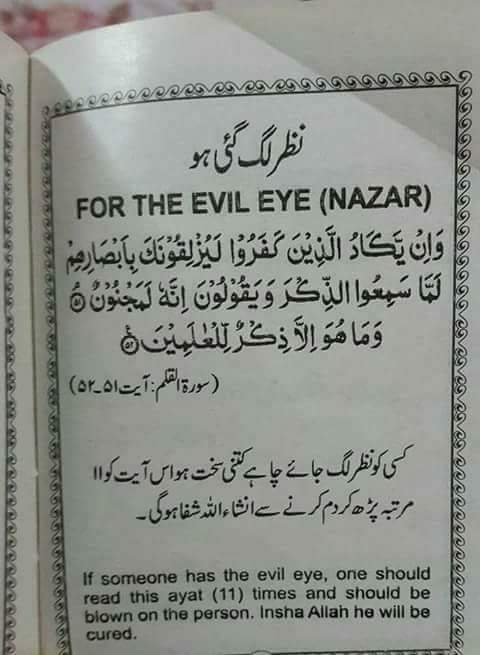 نظر لگ گئی ہو
FOR THE EVIL EYE (NAZAR)
وَاِنۡ يَّكَادُ الَّذِيۡنَ كَفَرُوۡا لَيُزۡلِقُوۡنَكَ بِاَبۡصَارِهِمۡ
لَمَّا سَمِعُوا الذِّكۡرَ وَيَقُوۡلُوۡنَ اِنَّهٗ لَمَجۡنُوۡنٌ ۘ‏﴿۵۱﴾
وَمَا هُوَ اِلَّا ذِكۡرٌ لِّلۡعٰلَمِيۡنَ ﴿۵۲﴾
(سورۃ القلم: آیت ۵۱۔۵۲)
کسی کو نظر لگ جائے چاہے کتنی سخت ہو اس آیت کو ۱۱
مرتبہ پڑھ کر دم کرنے سے انشاء اللہ شفا ہوگی۔
If someone has the evil eye, one should
read this ayat (11) times and should be
blown on the person. Insha Allah he will be
cured.